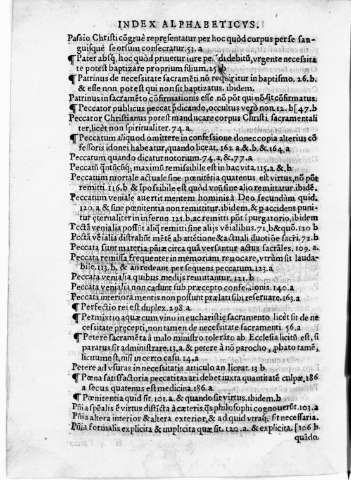 INDEX ALPHABETICVS.
Passio Christi cōgruè repræsentatur per hoc quòd corpus per se san-
guisque seorsum consecratur. 53. a
¶ Pater absq; hoc quòd priuetur iure petēdi debitū, vrgente necessita
te potest baptizare proprium filium. 25
¶ Patrinus de necessitate sacramēti nō requiritur in baptismo. 26. b.
& esse non potest qui non sit baptizatus. ibidem.
Patrinus in sacramēto cōfirmationis esse nō pōt qui nō sit cōfirmatus.
¶ Peccator publicus peccat prædicando, occultus verò non. 12. b [47. b
Peccator Christianus potest manducare corpus Christi sacramentali
ter, licèt non spiritualiter. 74. a
¶ Peccatum aliquod omittere in confessione donec copia alterius cō
fessoris idonei habeatur, quando liceat. 162. a & b. & 164. a
Peccatum quando dicatur notorium. 74. a, &. 77. a
maximè remissibile est in hac vita. 115. a & b
Peccatum mortale actuale sine pœnitentia quatenus est virtus, nō potē
remitti. 116. b & possibile est quòd vnū sine alio remittatur. ibidē.
Peccatum veniale auertit mentem hominis à Deo secundùm quid.
120. a & sine pœnitentia non remittitur. ibidem, & p accidēt puni
tur æternaliter in inferno 121. b. ac remitti pōt ī purgatorio, ibidem
venialia possūt aliq remitti sine alijs venialibus. 71. b & quō. 120 b
venialia distrahūt mētē ab attētione & actuali duotiōe sacri. 71. b
Peccata sunt materia pœnæ circa quā versantur actus sacrales. 109. a
Peccata remissa frequenter in memoriam reuocare, vtrùm sit lauda-
bile. 113. b, & an redeant per sequens peccatum. 123. a
Peccata venialia quibus medijs remittantur. 121. b
Peccata venialia non cadunt sub præcepto confessionis. 140. a
Peccata interiora mentis non possunt prælati sibi reseruare. 163. a
¶ Perfectio rei est duplex. 298. a
¶ Permixtio aquæ cum vino in eucharistiæ sacramento licèt sit de ne
cessitate præcepti, non tamen de necessitate sacramenti. 56. a
¶ Petere sacramēta à malo ministro tolerato ab Ecclesia licitū est, si
paratus sit administrare. 13. a & petere à nō parocho, pbato tamē,
licitum est, nisi in certo casu. 14. a
Petere ad vsuras in necessitatis articulo an liceat. 13 b
¶ Pœna satisfactoria peccatis an debet iuxta quantitatē culpæ. 186
a secus quatenus est medicina. 186. a
¶ Pœnitentia quid sit. 101. a. & quando sit virtus. ibidem. b
Pñia spēalis ē virtus distīcta à cæteris, quā philosophi cognouerūt. 103. a
Pñia altera interior & altera exterior, & ad quid vtraq; sit necessaria.
Pñia formalis explicita & implicita quæ sit. 120. a. & explicita. [106 b.
quādo.